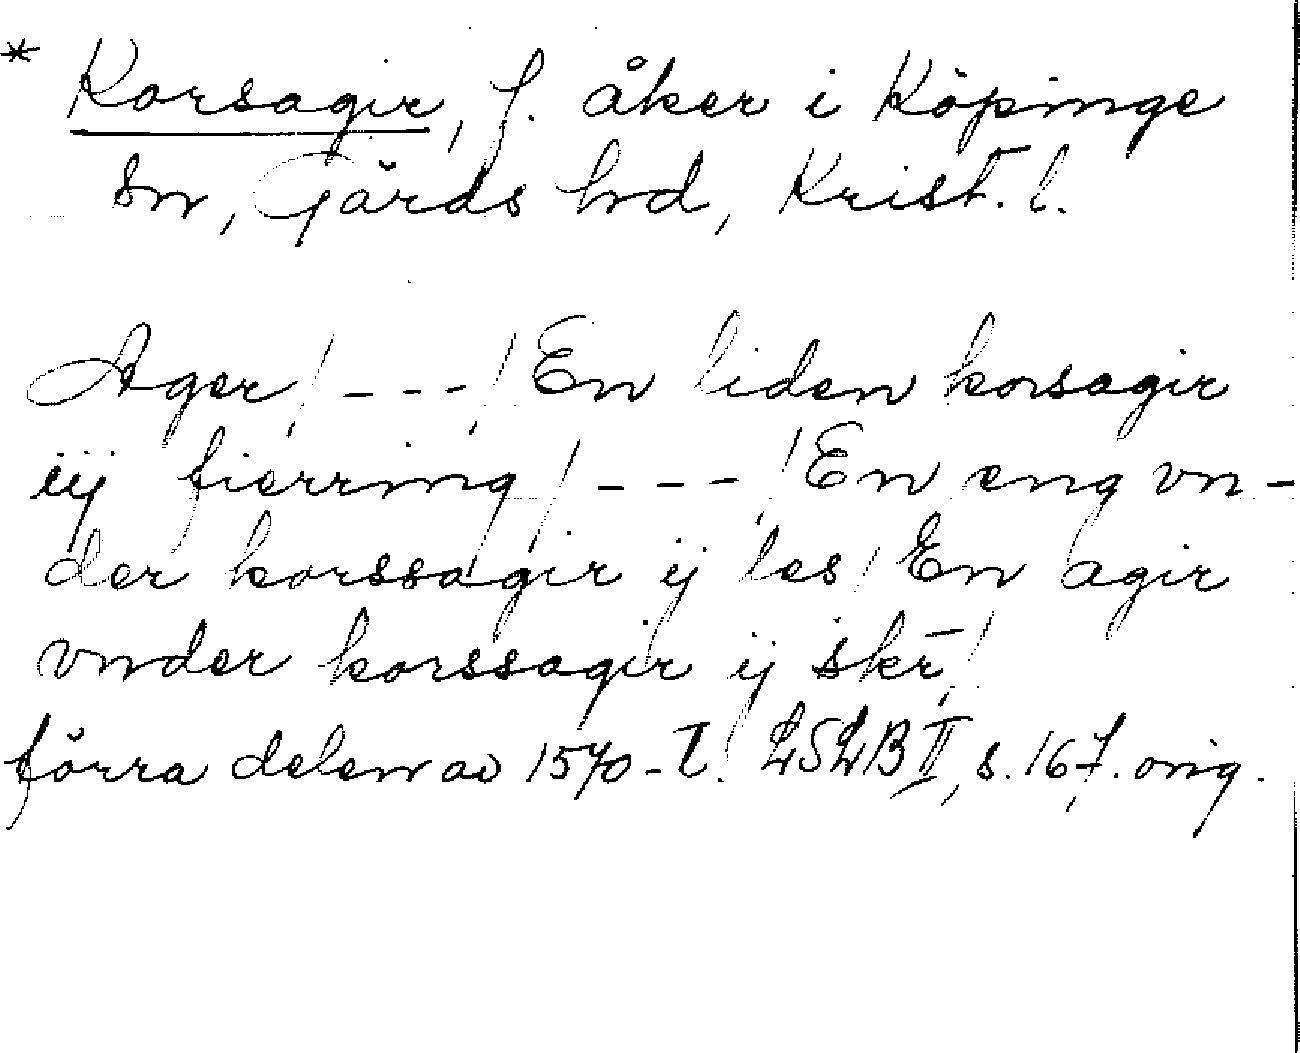 * Korsagir, f. åker i Köpinge
sn, Gärds hrd, Krist. l.
Ager, / - - - / En liden korsagir
iij fierring / - - - / En eng vn-
der korssagir ij les / En agir
vnder korssagir ij skr̄ /
förra delen av 1570-t. LSLB II, s. 167. orig.